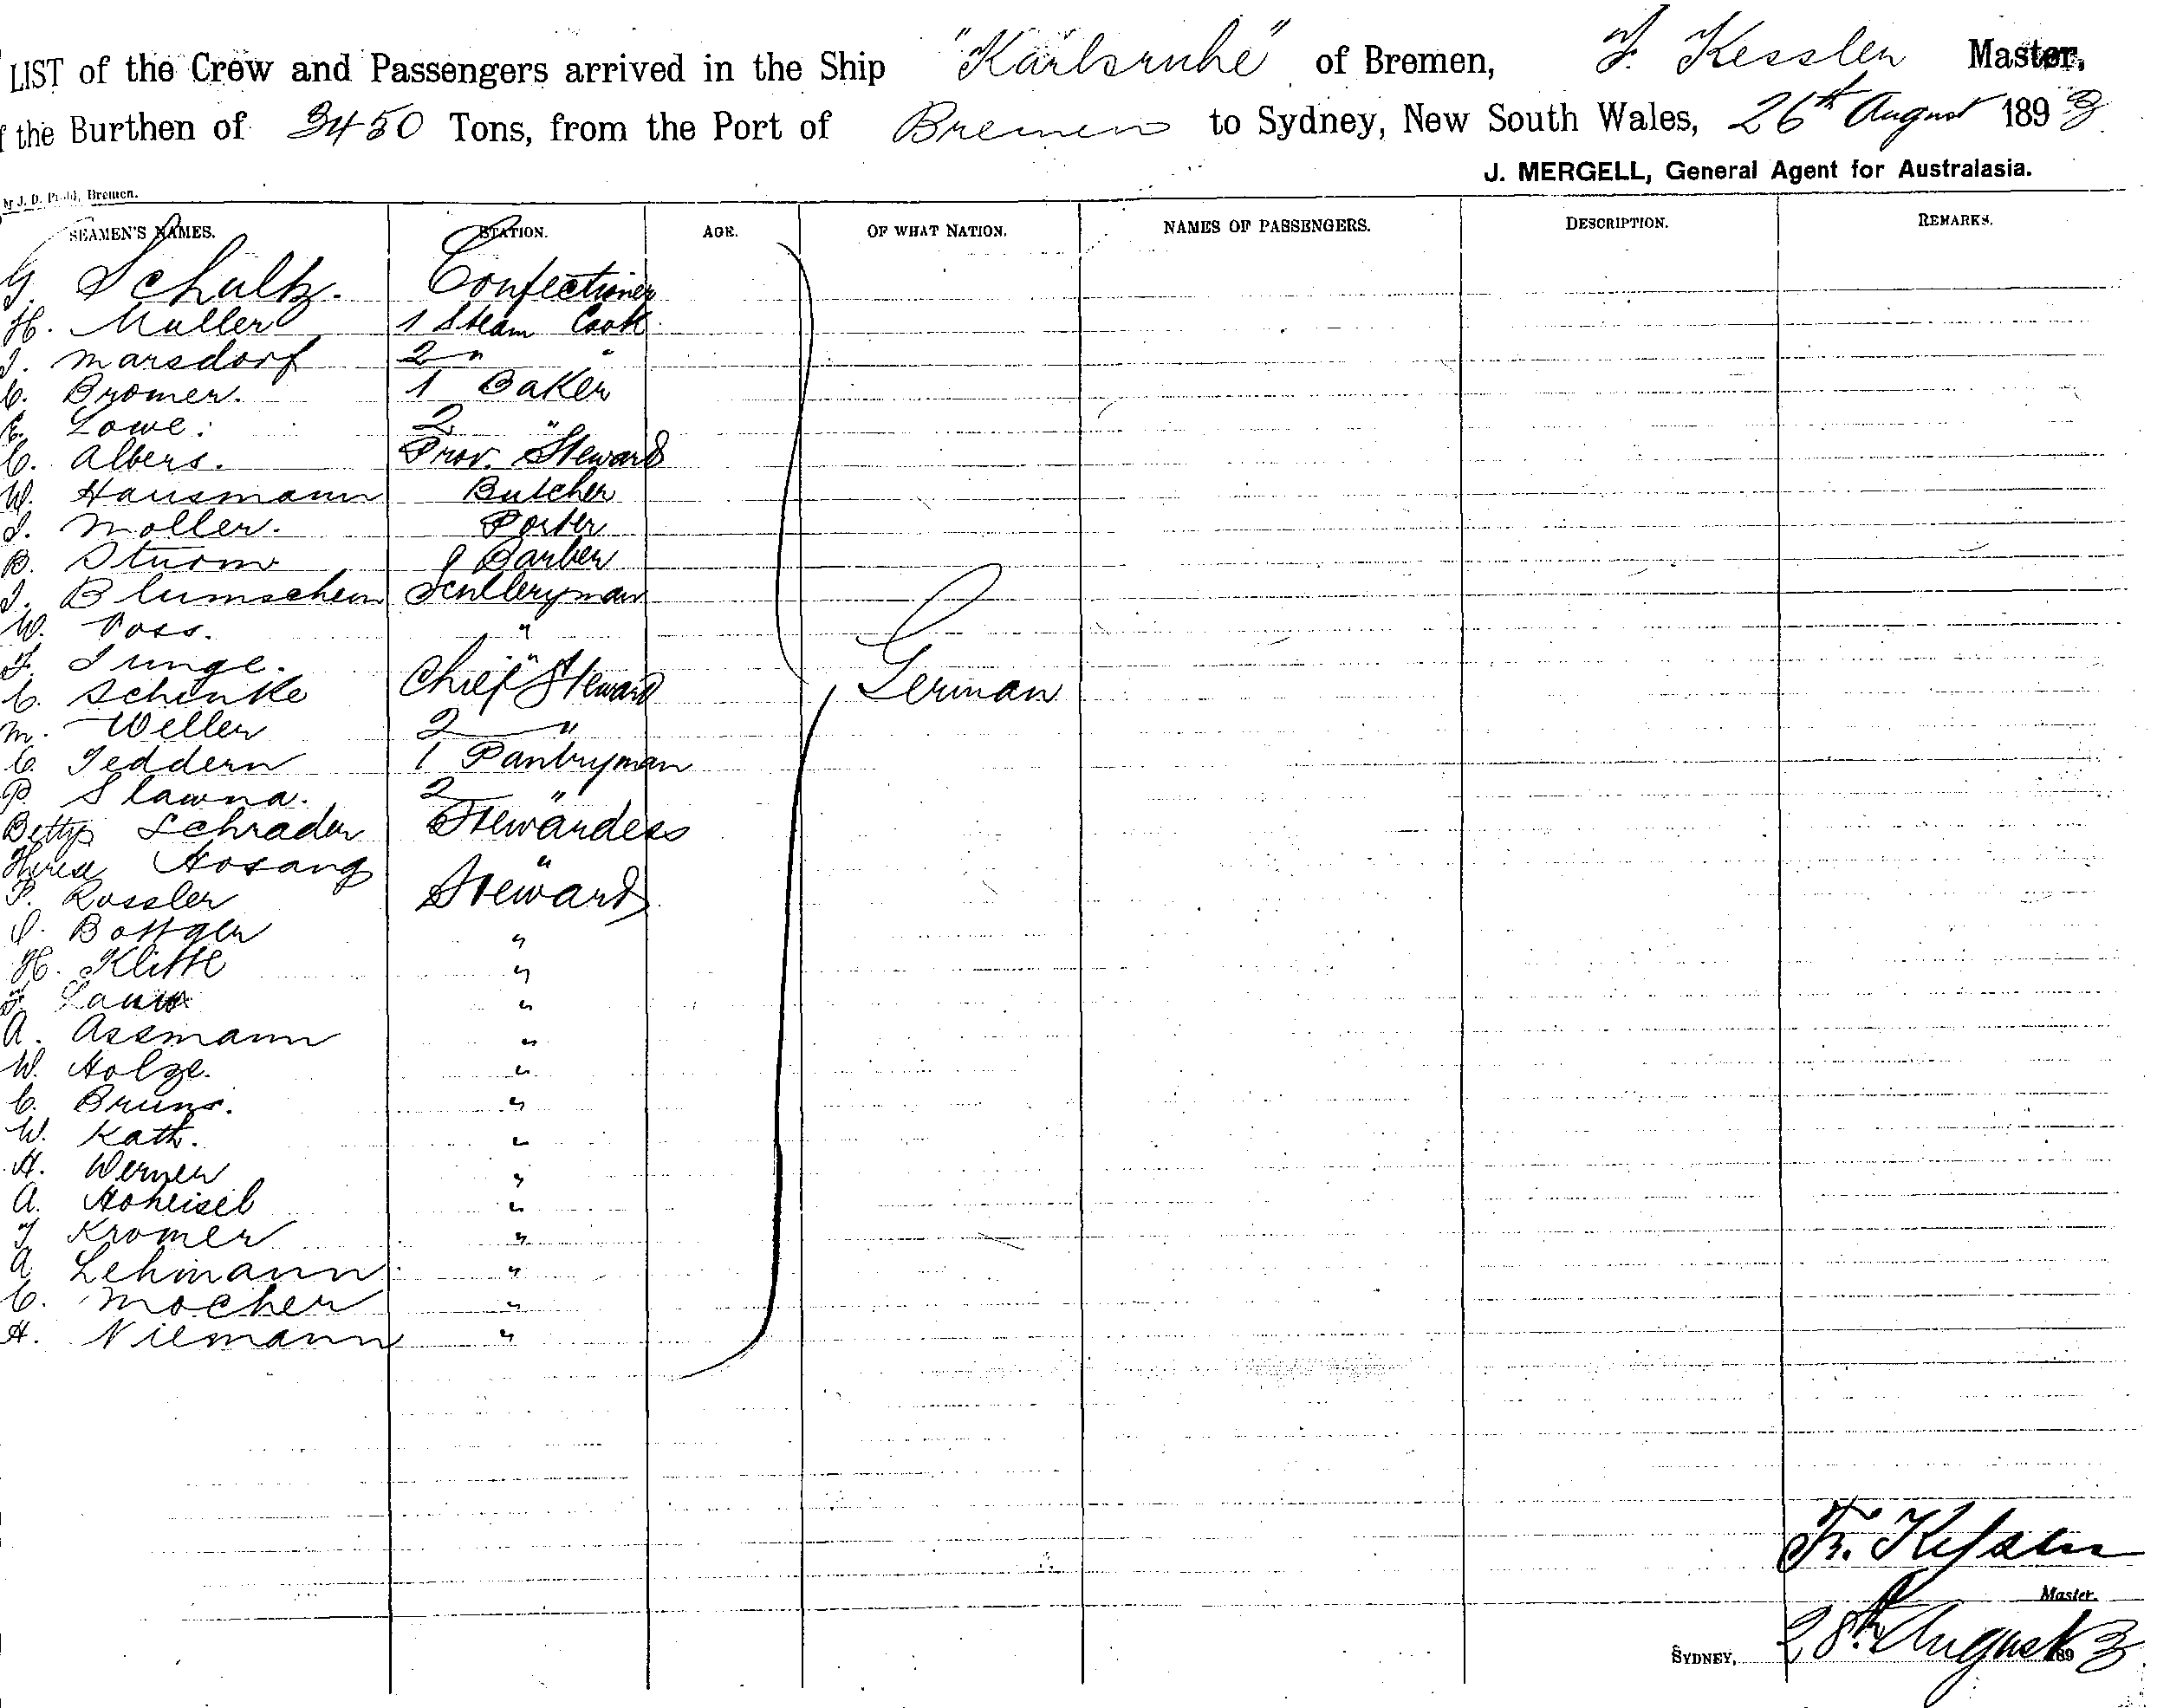 LIST of the Crew and Passengers arrived in the Ship "Karlsruhe" of Bremen, F. Kessler Master,
f the Burthen of 3450 Tons, from the Port of Bremen to Sydney, New South Wales, 26th August 1893
J. MERGELL, General Agent for Australasia.
Bremen.
SEAMEN'S NAMES. STATION. AGE. OF WHAT NATION. NAMES OF PASSENGERS. DESCRIPTION. REMARKS.
G. Schultz. Confectioner
H. Muller 1 Steam Cook
J. Marsdorf 2 " "
C. Bromer. 1 Baker
E. Lowe. 2 "
C. Albers. Prov. Steward
W. Hausmann Butcher
J. Moller. Porter
B. Sturm Barber
J. Blumschein Sculleryman
W. Voss. "
F. Junge. "
C. Schinke Chief Steward German
M. Weller 2 "
C. Jeddern 1 Pantryman
P. Slawna. 2 "
Betty Schrader Stewardess
Hosang "
P. Rossler Steward
J. Bottger "
H. Klitte "
F. "
A. Assmann "
W. Holze. "
C. Bruns. "
W. Kath. "
H. Werner "
A. Hoheisel "
F Kromer "
A Lehmann "
C. Mocher "
H. Niemann "
Fr. Kessler
Master.
SYDNEY, 28th August 1893